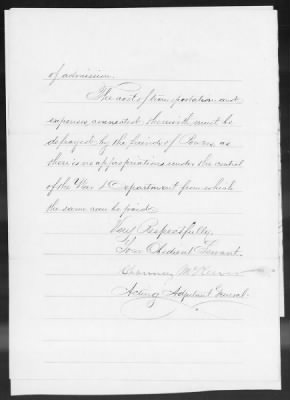 of admission.
The cost of transportation and
expenses connected therewith must be
defrayed by the friends of Powers as
there is no appropriations under the control
of the War Department from which
the same can be paid.
Very Respectfully,
Your Obedient Servant,
Chauncey McKeever
Acting Adjutant General.